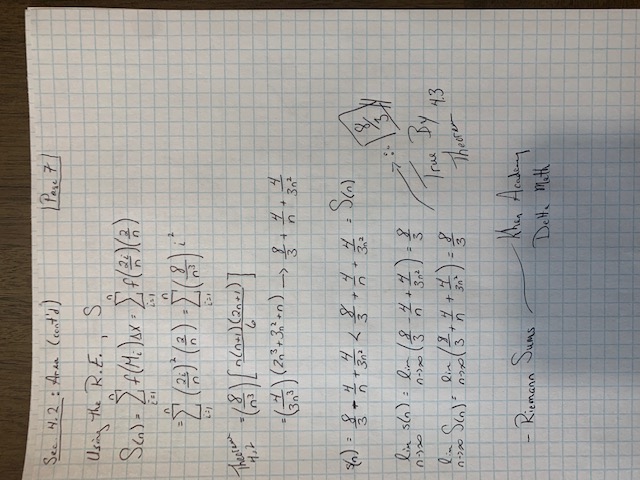 Sec 4.2: Area (cont'd) Page 7
Using the R.E., S
S(n) = Σ_{i=1}^{n} f(M_i)Δx = Σ_{i=1}^{n} f(2i/n)(2/n)
= Σ_{i=1}^{n} (2i/n)² (2/n) = Σ_{i=1}^{n} (8/n³) i²
Theorem 4.2 = (8/n³) [n(n+1)(2n+1)/6]
= (4/3n³)(2n³+3n²+n) → 8/3 + 4/n + 4/3n²
s(n) = 8/3 - 4/n + 4/3n² < 8/3 + 4/n + 4/3n² = S(n)
lim_{n→∞} s(n) = lim_{n→∞} (8/3 - 4/n + 4/3n²) = 8/3
lim_{n→∞} S(n) = lim_{n→∞} (8/3 + 4/n + 4/3n²) = 8/3
→ ∴ 8/3
True By
Theorem 4.3
- Riemann Sums — Khan Academy
Delta Math